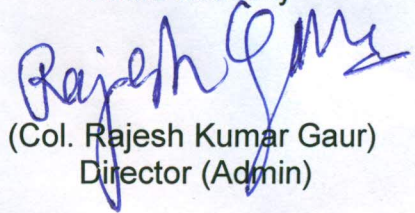 Rajesh Gaur
(Col. Rajesh Kumar Gaur)
Director (Admin)